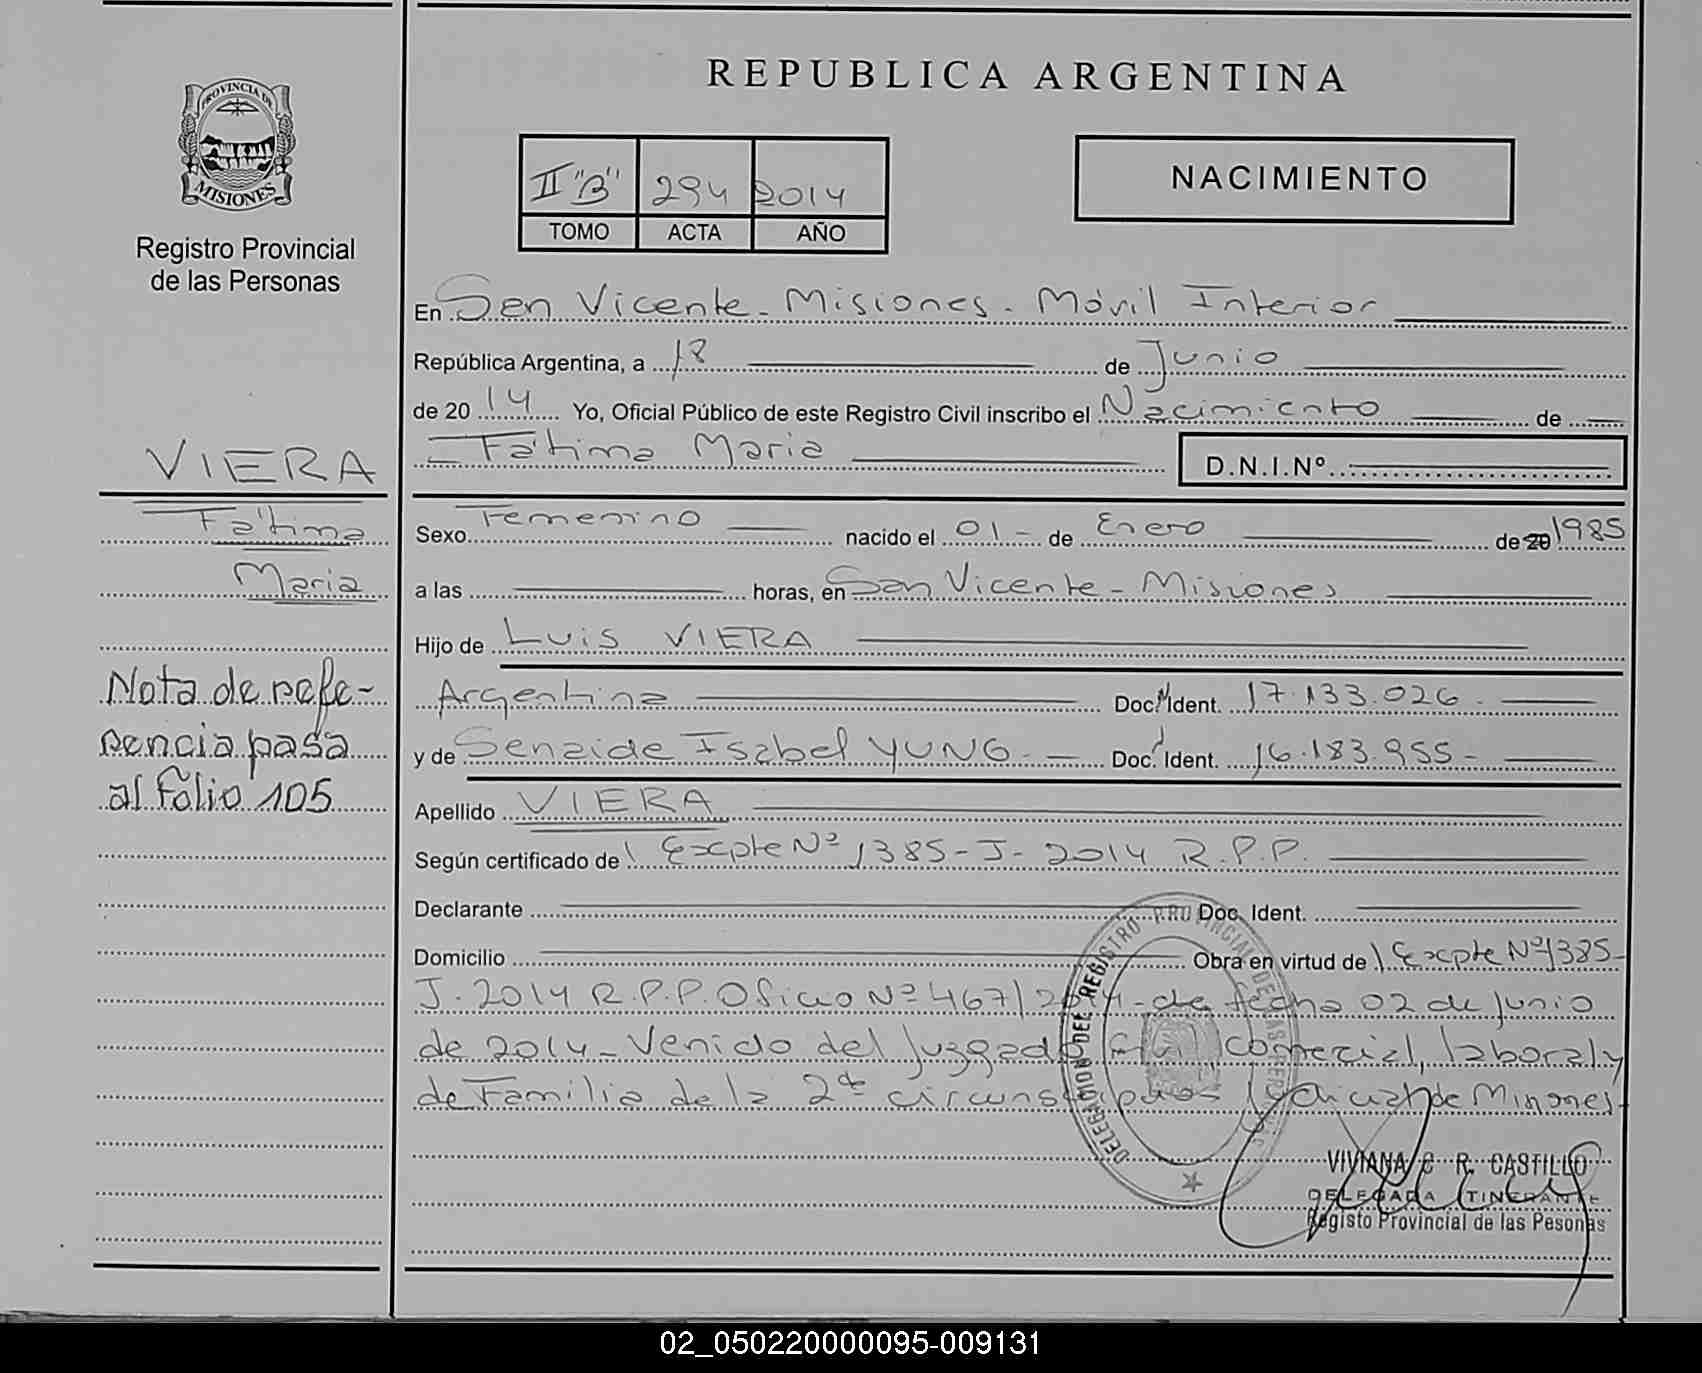 REPUBLICA ARGENTINA
PROVINCIA DE
MISIONES
Registro Provincial
de las Personas
II "B" 294 2014
TOMO ACTA AÑO
NACIMIENTO
En San Vicente - Misiones - Móvil Interior
República Argentina, a 18 de Junio
de 20 14 Yo, Oficial Público de este Registro Civil inscribo el Nacimiento de
Fátima Maria D.N.I.Nº
VIERA
Fátima
Maria
Sexo Femenino nacido el 01 - de Enero de 20 1985
a las horas, en San Vicente - Misiones
Hijo de Luis VIERA
Argentina Doc. Ident. 17.133.026 -
y de Senaide Isabel YUNG - Doc. Ident. 16.183.955 -
Apellido VIERA
Según certificado de Expte Nº 1385-J-2014 R.P.P.
Declarante Doc. Ident.
Domicilio Obra en virtud de Expte Nº 1385-
J-2014 R.P.P. Oficio Nº 467/2014 - de fecha 02 de Junio
de 2014 - Venido del Juzgado Civil, Comercial, laboral y
de Familia de la 2da circunscripción Judicial de Misiones-
Nota de refe-
rencia pasa
al folio 105
DELEGACION DEL REGISTRO PROVINCIAL DE LAS PERSONAS
VIVIANA C. R. CASTILLO
DELEGADA ITINERANTE
Registo Provincial de las Pesonas
02_050220000095-009131